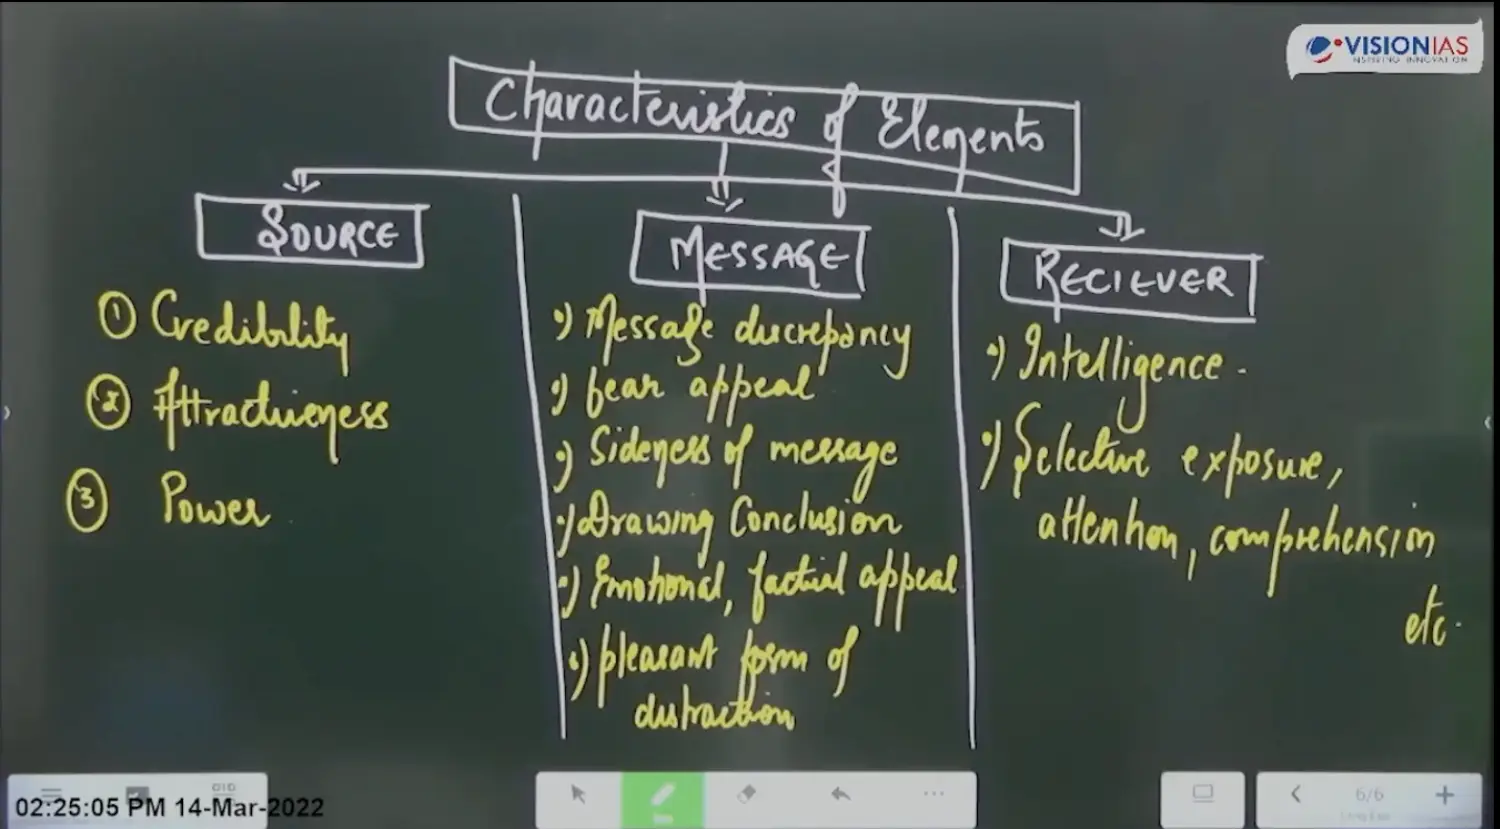 VISIONIAS
INSPIRING INNOVATION
Characteristics of Elements
SOURCE
① Credibility
② Attractiveness
③ Power
MESSAGE
•) Message discrepancy
•) fear appeal
•) Sideness of message
•) Drawing Conclusion
•) Emotional, factual appeal
•) pleasant form of
distraction
RECIEVER
•) Intelligence.
•) Selective exposure,
attention, comprehension
etc.
02:25:05 PM 14-Mar-2022
6/6